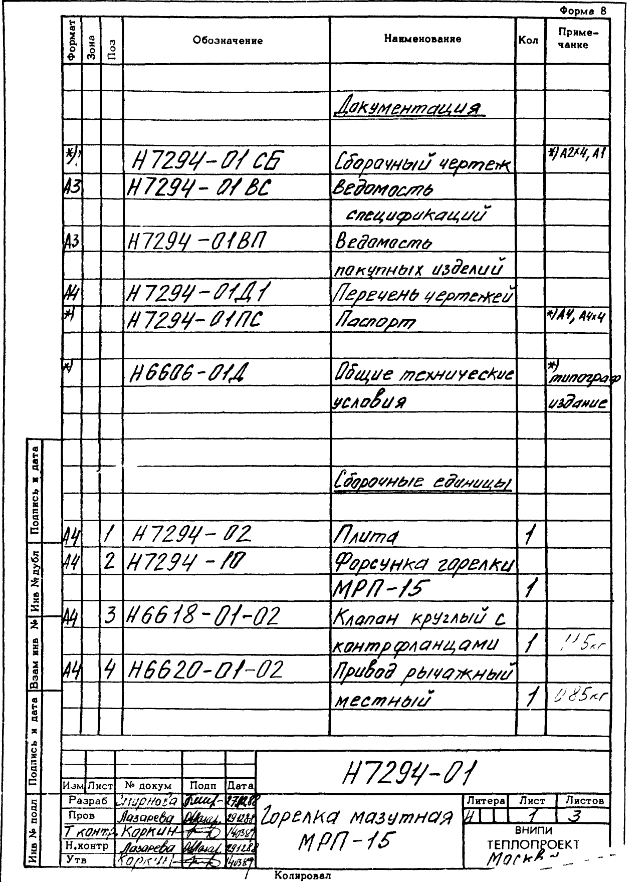 Форма 8
Формат Зона Поз Обозначение Наименование Кол Приме-
чание
Документация
*) Н7294-01 СБ Сборочный чертеж *) А2×4, А1
А3 Н7294-01 ВС Ведомость
спецификаций
А3 Н7294-01ВП Ведомость
покупных изделий
А4 Н7294-01Д1 Перечень чертежей
*) Н7294-01ПС Паспорт *) А4, А4×4
*) Н6606-01Д Общие технические *) типограф
условия издание
Сборочные единицы
А4 1 Н7294-02 Плита 1
А4 2 Н7294-10 Форсунка горелки
МРП-15 1
А4 3 Н6618-01-02 Клапан круглый с
контрфланцами 1
А4 4 Н6620-01-02 Привод рычажный
местный 1 0,85кг
Инв № подл Подпись и дата Взам инв № Инв № дубл Подпись и дата
Н7294-01
Изм Лист № докум Подп Дата
Разраб Смирнова
Пров Лазарева
Т контр. Коркин
Н.контр Лазарева
Утв Коркин
Горелка мазутная
МРП-15
Литера Лист Листов
И 1 3
ВНИПИ
ТЕПЛОПРОЕКТ
Москва
Копировал